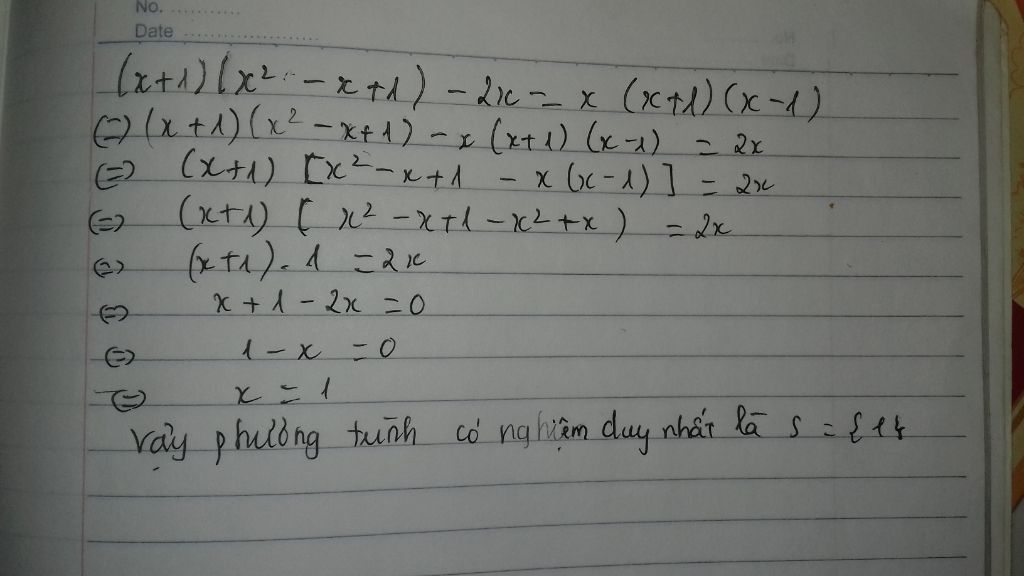 No. ............
Date ......................
(x+1)(x² - x+1) - 2x = x (x+1)(x-1)
(=) (x+1)(x² - x+1) - x (x+1) (x-1) = 2x
(=) (x+1) [x² - x+1 - x (x-1)] = 2x
(=) (x+1) [ x² - x+1 - x² + x ) = 2x
(=) (x+1) . 1 = 2x
(=) x + 1 - 2x = 0
(=) 1 - x = 0
(=) x = 1
Vậy phương trình có nghiệm duy nhất là S = {1}